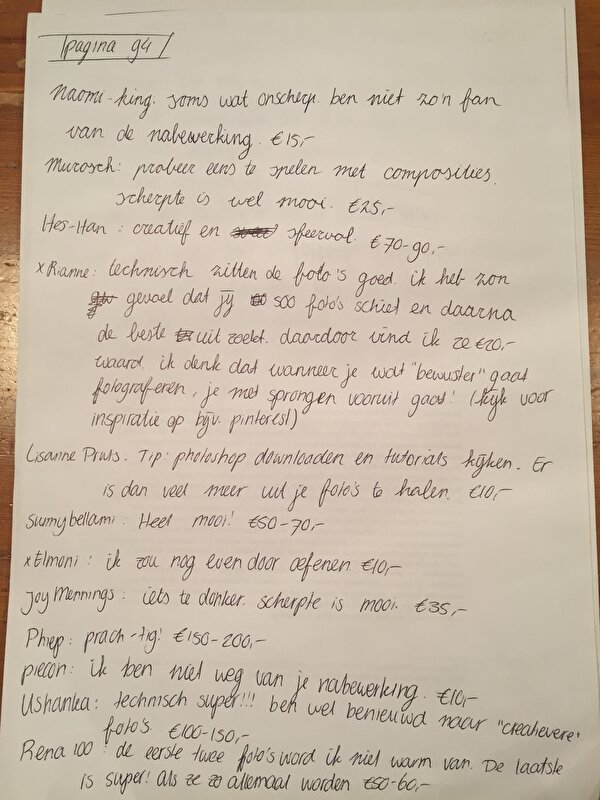 pagina 94
Naomi-king. soms wat onscherp. ben niet zo'n fan
van de nabewerking. €15,-
Murosch: probeer eens te spelen met composities.
scherpte is wel mooi. €25,-
Hes-Han: creatief en sfeervol. €70-90,-
x Rianne: technisch zitten de foto's goed. ik heb zon
gevoel dat jij 500 foto's schiet en daarna
de beste uit zoekt. daardoor vind ik ze €20,-
waard. ik denk dat wanneer je wat "bewuster" gaat
fotograferen, je met sprongen vooruit gaat! (kijk voor
inspiratie op bijv. pinterest)
Lisanne Pruts. Tip: photoshop downloaden en tutorials kijken. Er
is dan veel meer uit je foto's te halen. €10,-
Sunnybellami: Heel mooi! €50-70,-
x Elmoni: ik zou nog even door oefenen. €10,-
Joy Mennings: iets te donker. scherpte is mooi. €35,-
Phiep: prach-tig! €150-200,-
piecon: ik ben niet weg van je nabewerking. €10,-
Ushanka: technisch super!!! ben wel benieuwd naar "creatievere"
foto's. €100-150,-
Rena 100: de eerste twee foto's word ik niet warm van. De laatste
is super! als ze zo allemaal worden €50-60,-